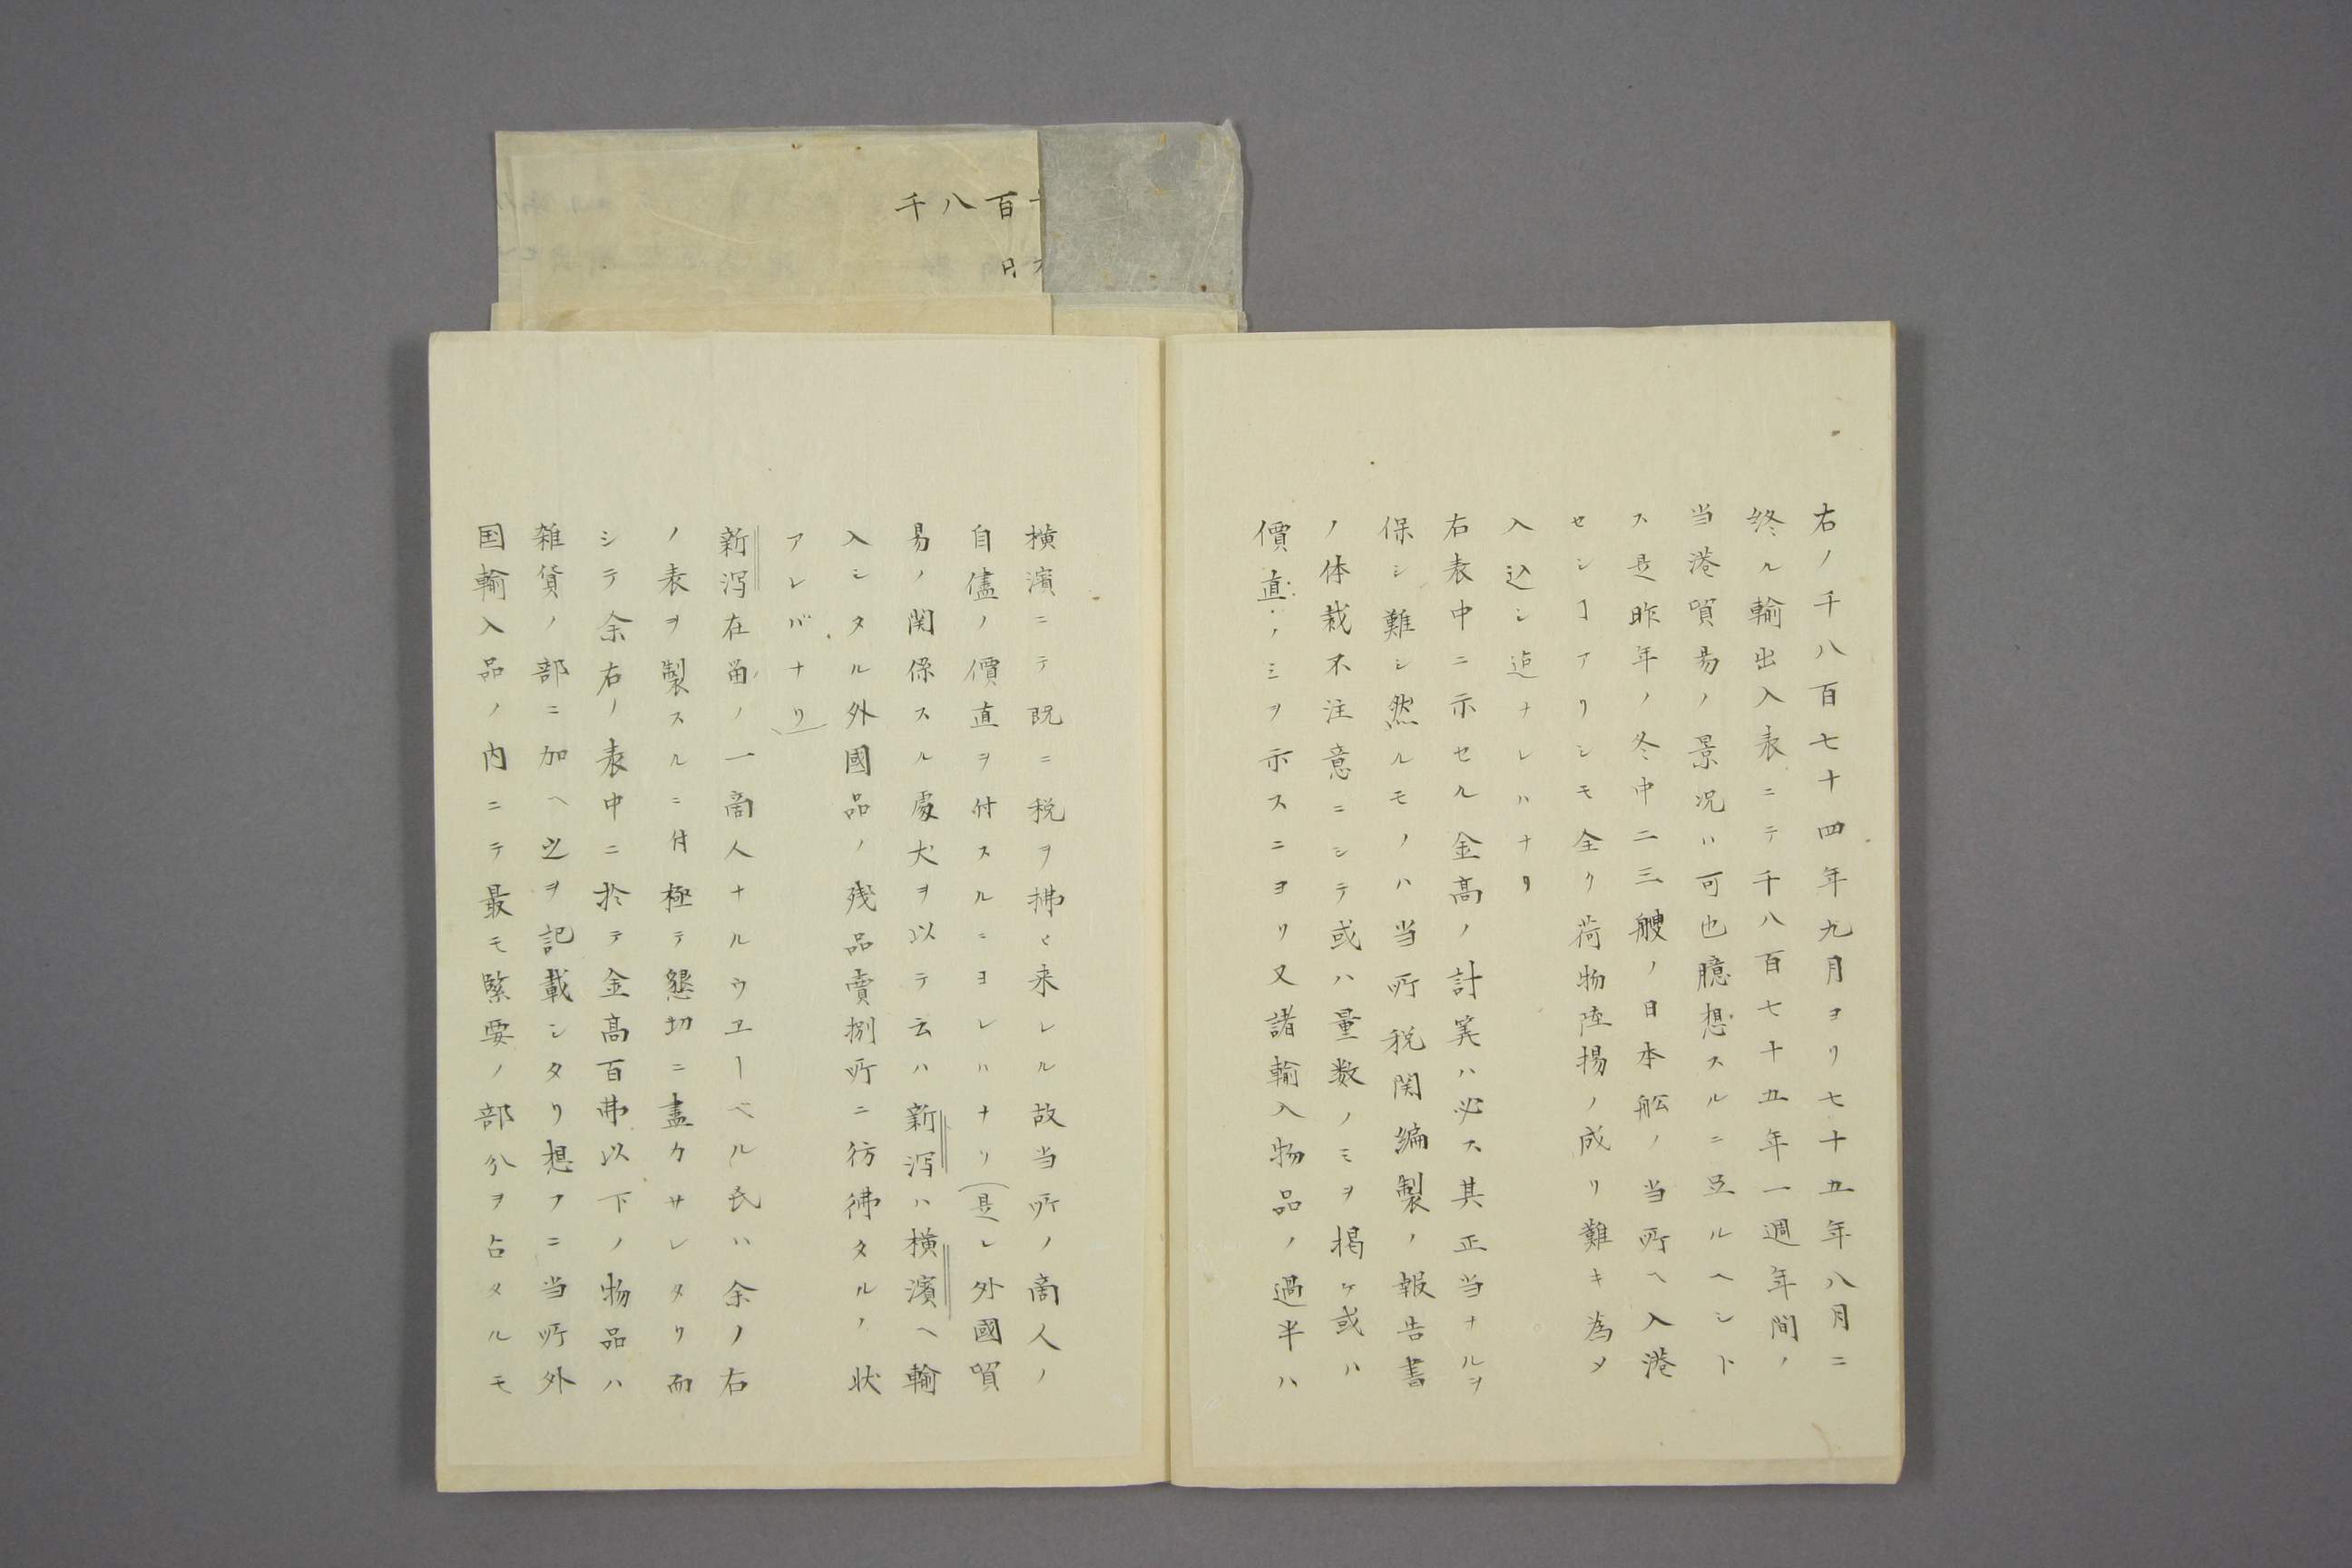 右ノ千八百七十四年九月ヨリ七十五年八月ニ
終ル輸出入表ニテ千八百七十五年一週年間ノ
当港貿易ノ景况ハ可也臆想スルニ足ルヘシト
ス是昨年ノ冬中二三艘ノ日本舩ノ当所ヘ入港
センヿアリシモ全ク荷物陸揚ノ成リ難キ為メ
入込シ迠ナレハナリ
右表中ニ示セル金高ノ計筭ハ必ス其正当ナルヲ
保シ難シ然ルモノハ当所税関編製ノ報告書
ノ体裁不注意ニシテ或ハ量数ノミヲ掲ケ或ハ
價直ノミヲ示スニヨリ又諸輸入物品ノ過半ハ
横濱ニテ既ニ税ヲ拂ヒ来レル故当所ノ商人ノ
自儘ノ價直ヲ付スルニヨレハナリ（是レ外國貿
易ノ関係スル處犬ヲ以テ云ハ新泻ハ横濱ヘ輸
入シタル外國品ノ残品賣捌所ニ彷彿タルノ状
アレバナリ）
新泻在畄ノ一商人ナルウヱーベル氏ハ余ノ右
ノ表ヲ製スルニ付極テ懇切ニ盡力サレタリ而
シテ余右ノ表中ニ於テ金高百弗以下ノ物品ハ
雑貨ノ部ニ加ヘ之ヲ記載シタリ想フニ当所外
国輸入品ノ内ニテ最モ緊要ノ部分ヲ占タルモ
千八百